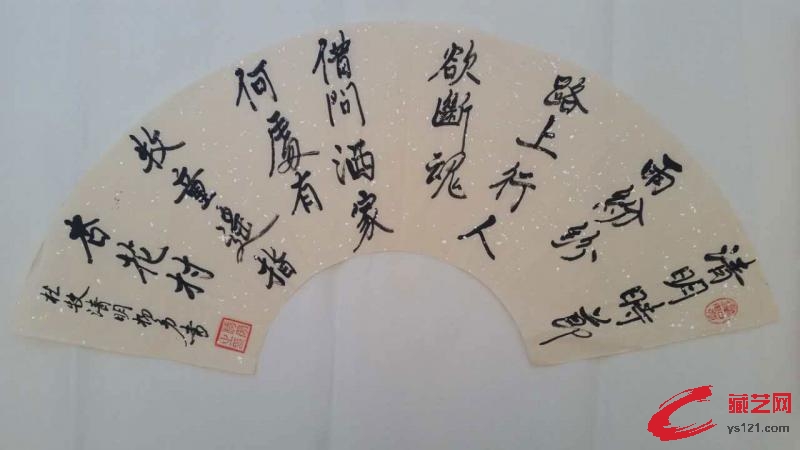 清明時節
雨紛紛
路上行人
欲斷魂
借問酒家
何處有
牧童遥指
杏花村
杜牧清明楊勇書
藏艺网
ys121.com